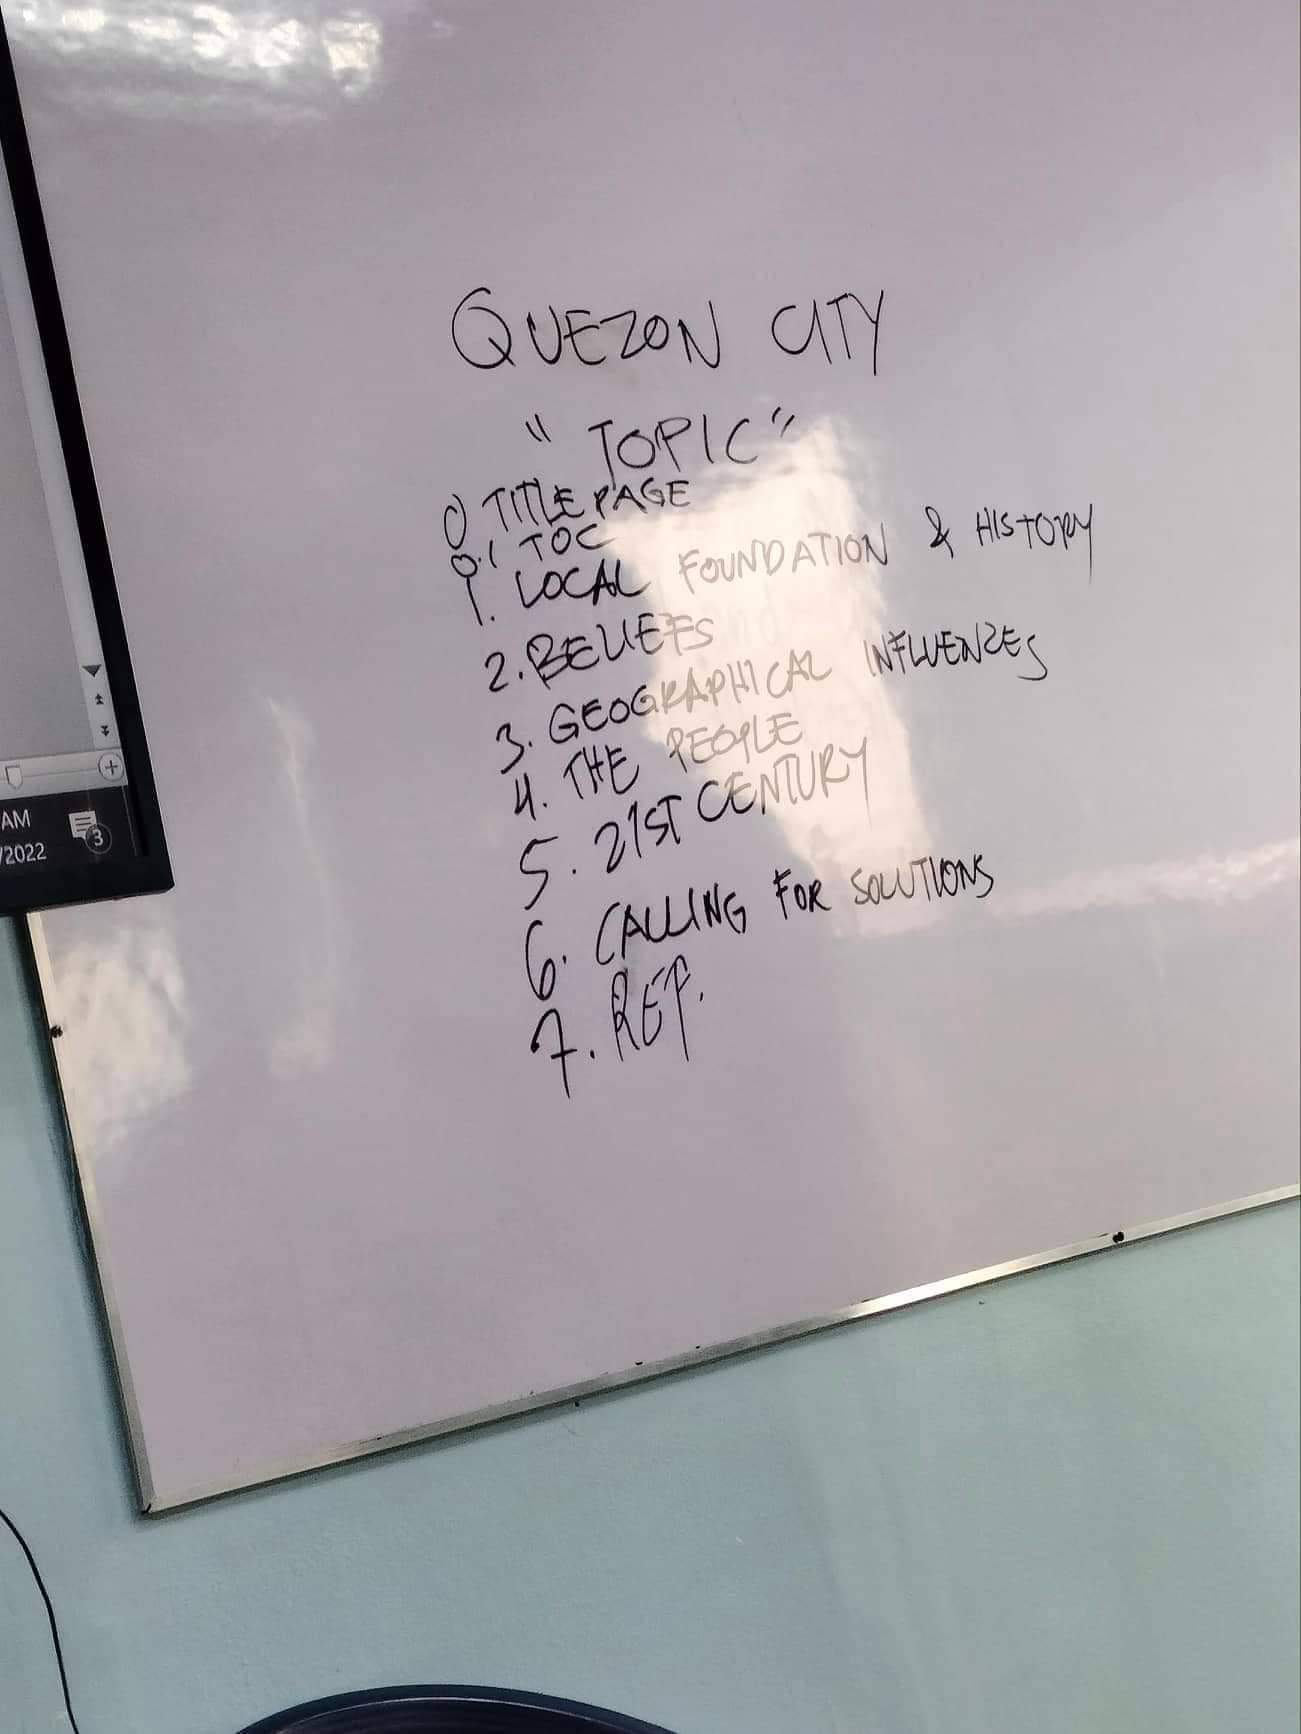 QUEZON CITY
"TOPIC"
0 TITLE PAGE
0.1 TOC
1. LOCAL FOUNDATION & HISTORY
2. BELIEFS
3. GEOGRAPHICAL INFLUENZES
4. THE PEOPLE
5. 21ST CENTURY
6. CALLING FOR SOLUTIONS
7. REF.
AM
/2022
3